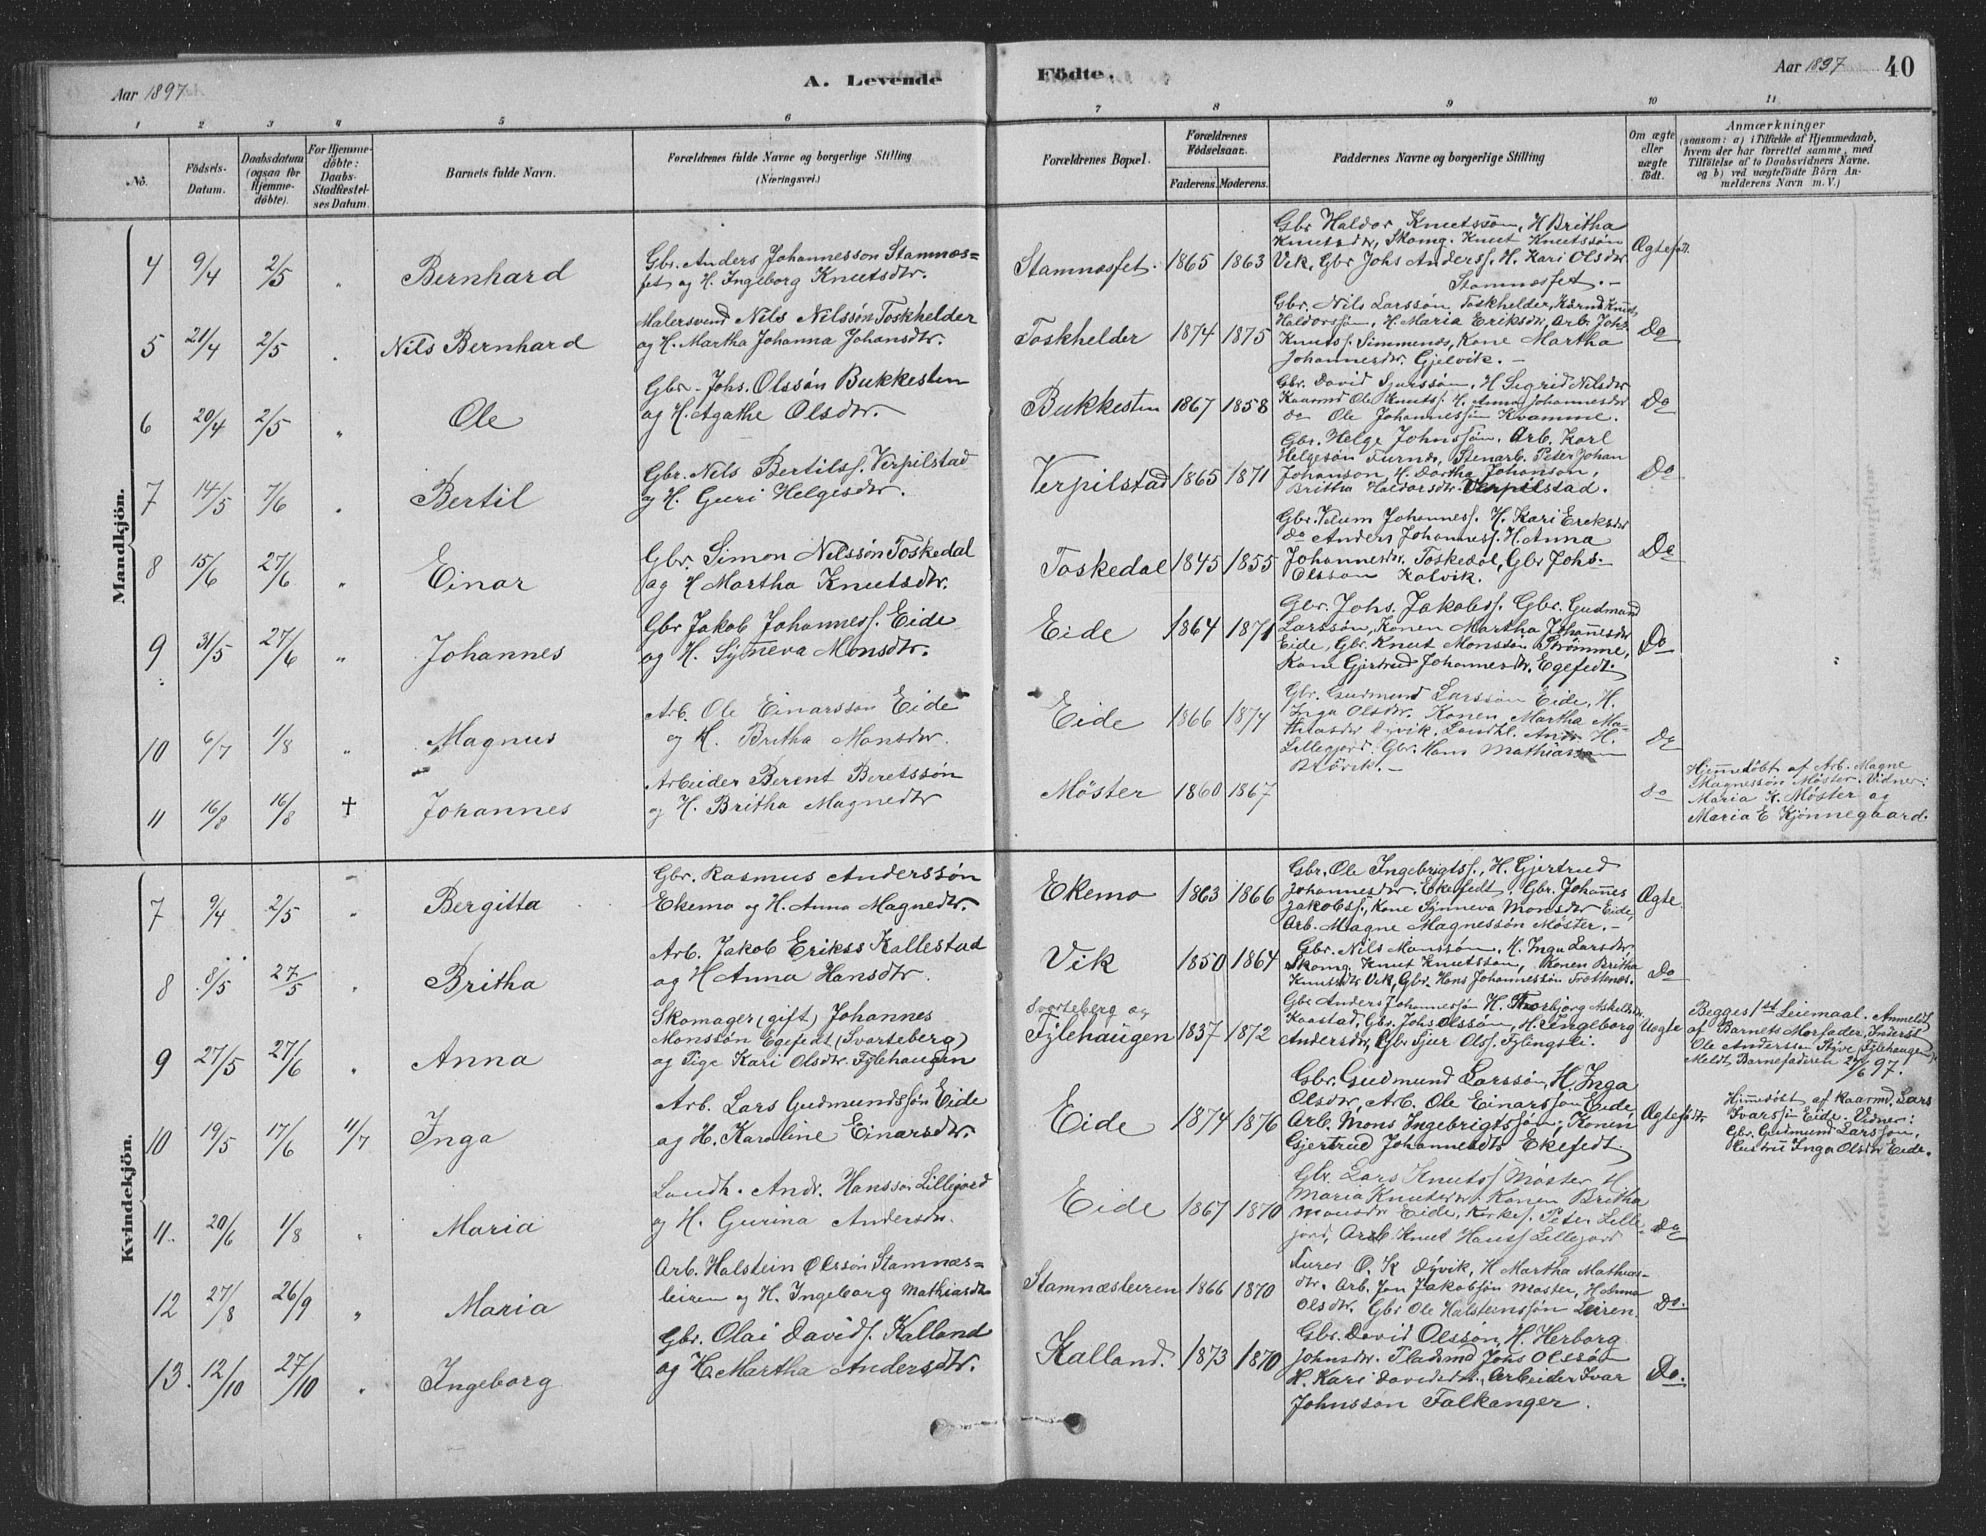 Aar 1897
A. Levende
Födte.
Aar 1897
40
1 2 3 4 5 6 7 8 9 10 11
No.
Födsels-
Datum.
Daabsdatum
(ogsaa for
Hjemme-
döbte).
For Hjemme-
döbte:
Daabs-
Stadfæstel-
ses Datum.
Barnets fulde Navn.
Forældrenes fulde Navne og borgerlige Stilling
(Næringsvei.)
Forældrenes Bopæl.
Forældrenes
Födselsaar.
Faderens. Moderens.
Faddernes Navne og borgerlige Stilling
Om ægte
eller
uægte
födt.
Anmærkninger
(saasom: a) i Tilfælde af Hjemmedaab,
hvem der har forrettet samme, med
Tilföielse af to Daabsvidners Navne.
og b) ved uægtefödte Börn An-
melderens Navn m. V.)
Mandkjön.
4 9/4 2/5 " Bernhard
Gbr. Anders Johannesson Stamnæs=
fet og H. Ingeborg Knutsdtr.
Stamnæsfet. 1865 1863
Gbr Haldor Knutssön, H Britha
Knutsdtr, Skomg. Knut Knutssön
Vik, Gbr Johs Anderss. H. Kari Olsdtr
Stamnæsfet. -
Ægtefdt.
5 21/4 2/5 " Nils Bernhard
Malersvend Nils Nilssön Toskhelder
og H. Martha Johanna Johansdtr.
Toskhelder 1874 1875
Gbr. Nils Larssön, Toskhelder, Kårmd Knut
Haldorssön, H. Maria Eriksdtr, Arb. Johs.
Knuts. Simmenes, Kone Martha
Johannesdtr. Gjelvik. -
Do
6 20/4 2/5 " Ole
Gbr. Johs. Olssön Bukkesten
og H. Agathe Olsdtr.
Bukkesten 1867 1858
Gbr. David Sjurssön, H Sigrid Nilsdtr
Kaarmd Ole Knuts. H. Anna Johannesdtr
do Ole Johannessön Kvamme.
Do
7 14/5 7/6 " Bertil
Gbr. Nels Bertils. Verpilstad
og H. Guri Helgesdtr.
Verpilstad 1865 1871
Gbr. Helge Johnssön, Arb. Karl
Helgesön Furnes, Stenarb. Peter Johan
Johanson, H. Dortha Johanson,
Britha Haldorsdtr. Verpilstad.
Do
8 15/6 27/6 " Einar
Gbr. Simon Nilssön Toskedal
og H Martha Knutsdtr.
Toskedal 1845 1855
Johanness. H. Kari Ericksdtr
do Anders Johanness. H. Anna
Johannesdtr. Toskedal, Gbr Johs.
Olsson Kalvik.
Do
9 31/5 27/6 " Johannes
Gbr Jakob Johanness. Eide
og H. Synneva Monsdtr.
Eide 1864 1871
Gbr. Johs. Jakobs. Gbr. Gudmund
Larssön, Konen Martha Johannesdtr
Eide, Gbr. Knut Monsson Strömme,
Kone Gjertrud Johannesdtr. Egefedt.
Do
10 6/7 1/8 " Magnus
Arb. Ole Einarsson Eide
og H. Britha Monsdtr.
Eide 1866 1874
Gbr. Gudmund Larssön Eide, H.
Inga Olsdtr. Konen Martha Ma-
thiasdtr Dyvik. Landhl. Andr. H.
Lillejord. Gbr. Hans Mathiassen
Dyvik. -
Do
11 16/8 16/8 † Johannes
Arbeider Berent Beretssön
og H. Britha Magnedtr
Möster 1860 1867
do
Hjemmedöbt af Arb. Magne
Magnessön Möster. Vidner:
Maria K. Möster og
Maria E Kjönnegaard.
Kvindekjön.
7 9/4 2/5 " Bergitta
Gbr. Rasmus Anderssön
Ekemo og H. Anna Magnedtr.
Ekemo 1863 1866
Gbr. Ole Ingebrigts., H. Gjertrud
Johannesdtr Ekefedt, Gbr. Johannes
Jakobs., Kone Synneva Monsdtr Eide,
Arb. Magne Magnessön Möster. -
Ægte
8 8/5 27/5 " Britha
Arb. Jakob Erikss Kallestad
og H Anna Hansdtr.
Vik 1850 1864
Gbr. Nils Monssön, H. Inga Larsdtr
Skomg. Knut Knutsson, Konen Britha
Knutsdtr Vik, Gbr. Hans Johannessön Trottenes.
Do
9 27/5 27/6 " Anna
Skomager (gift) Johannes
Monssön Egefedt (Svarteberg)
og Pige Kari Olsdtr. Fylehaugen
Svarteberg og
Fylehaugen 1837 1872
Gbr Anders Johannessön H. Thorbjörg Askelsdtr.
Kaastad, Gbr. Johs Olssön, H. Ingeborg
Andersdtr, Gbr Sjur Ols. Fylingslei.
Uægte
Begges 1st Leiemaal. Anmeldt
af Barnets Morfader, Inderst
Ole Andersson Styve (Fylehaugen)
Meldt Barnefaderen 27/6 97.
10 19/5 17/6 11/7 Inga
Arb. Lars Gudmundssön Eide
og H. Karoline Einarsdtr.
Eide 1874 1876
Gbr. Gudmund Larssön, H. Inga
Olsdtr, Arb. Ole Einarsson Eide,
Arb. Mons Ingebrigtsson, Konen
Gjertrud Johannesdtr Ekefedt
Ægtefödt.
Hjemmedöbt af Kaarmd. Lars
Ivarssön Eide. Vidner:
Gbr. Gudmund Larsson,
Hustru Inga Olsdtr Eide.
11 20/6 1/8 " Maria
Landh. Andr. Hansson Lillejord
og H. Gurina Andersdtr.
Eide 1867 1870
Gbr. Lars Knuts. Möster H
Maria Knutsdtr. Konen Britha
Monsdtr Eide, Kirkes. Peter Lille-
jord, Arb. Knut Hanss Lillejord
Do
12 27/8 26/9 " Maria
Arb. Halstein Olssön Stamnæs=
leiren og H. Ingeborg Mathiasdtr
Stamnæsleiren 1866 1870
Lærer O. K Dyvik, H Martha Mathias-
dtr. Arb. Jon Jakobsön Möster, H Anna
Olsdtr. Gbr Ole Halsteinssön Leiren
Do.
13 12/10 27/10 " Ingeborg
Gbr. Olai Davids. Kalland
og H. Martha Andersdtr.
Kalland. 1873 1870
Gbr. David Olssön, H. Herborg
Johnsdtr. Pladsmd Johs Olssön
H. Kari Davidsdtr. Arbeider Ivar
Johnsson Falkanger.
Do.